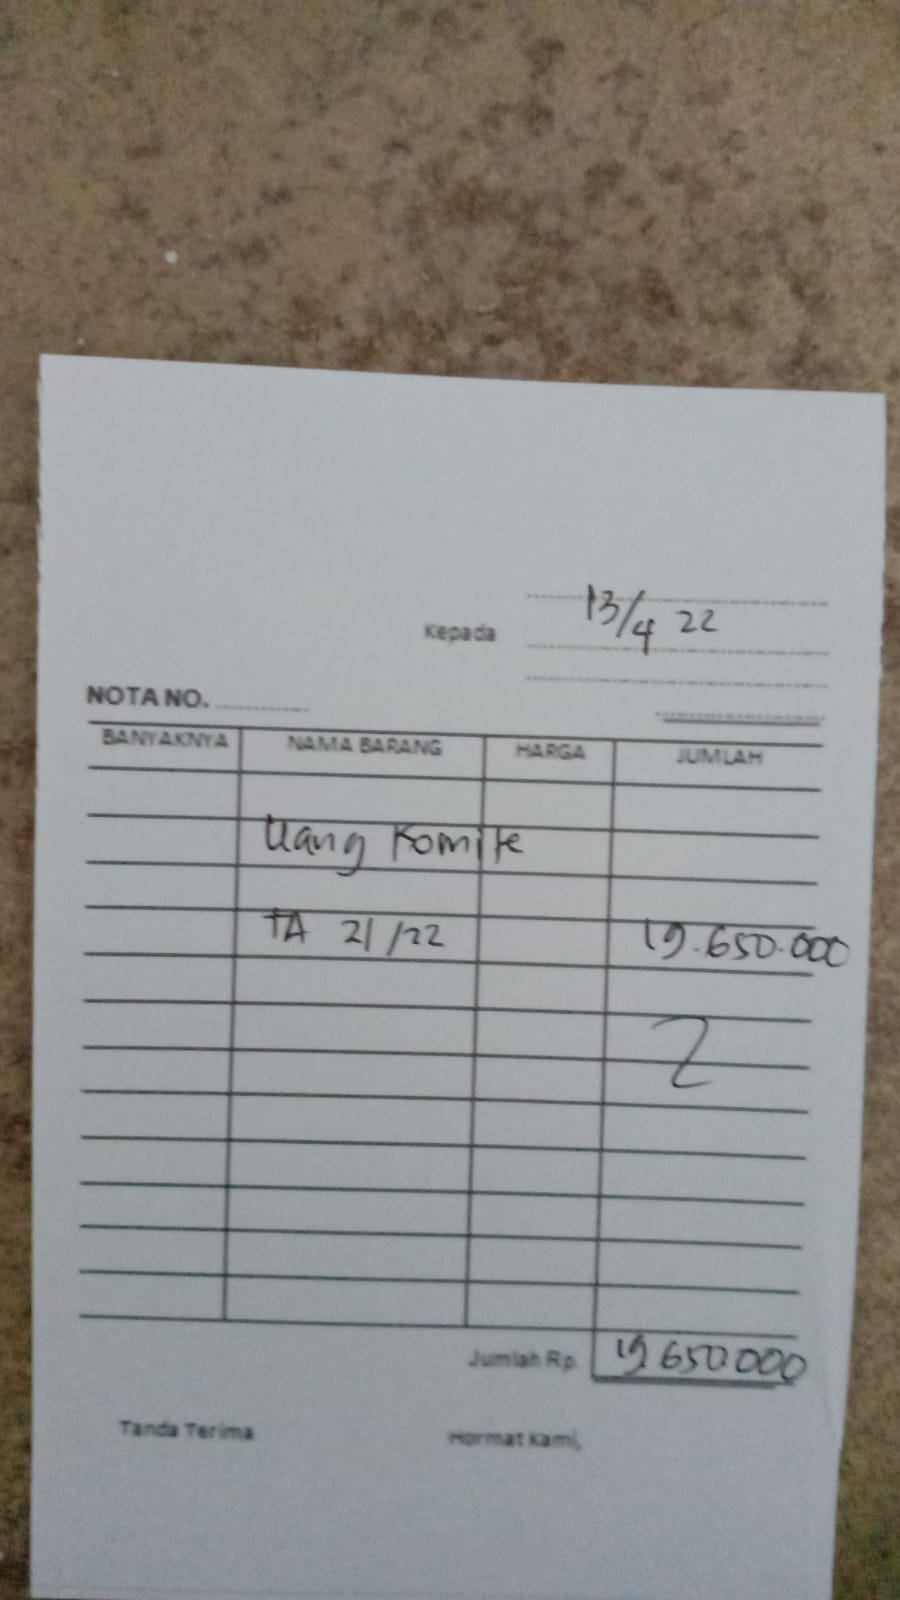 13/4 22
Kepada
NOTA NO. ............
BANYAKNYA NAMA BARANG HARGA JUMLAH
Uang Komite
TA 21/22 19.650.000
Jumlah Rp. 19 650 000
Tanda Terima Hormat Kami,